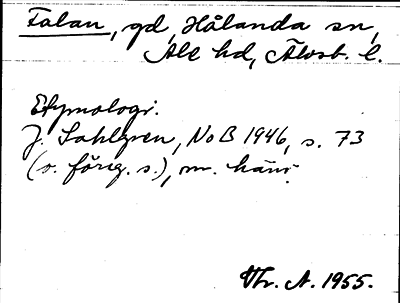 Falan, gd, Hålanda sn,
Ale hd, Älvsb. l.
Etymologi.
J. Sahlgren, NoB 1946, s. 73
(o. föreg. s.), m. hänv.
Vbr. A. 1955.